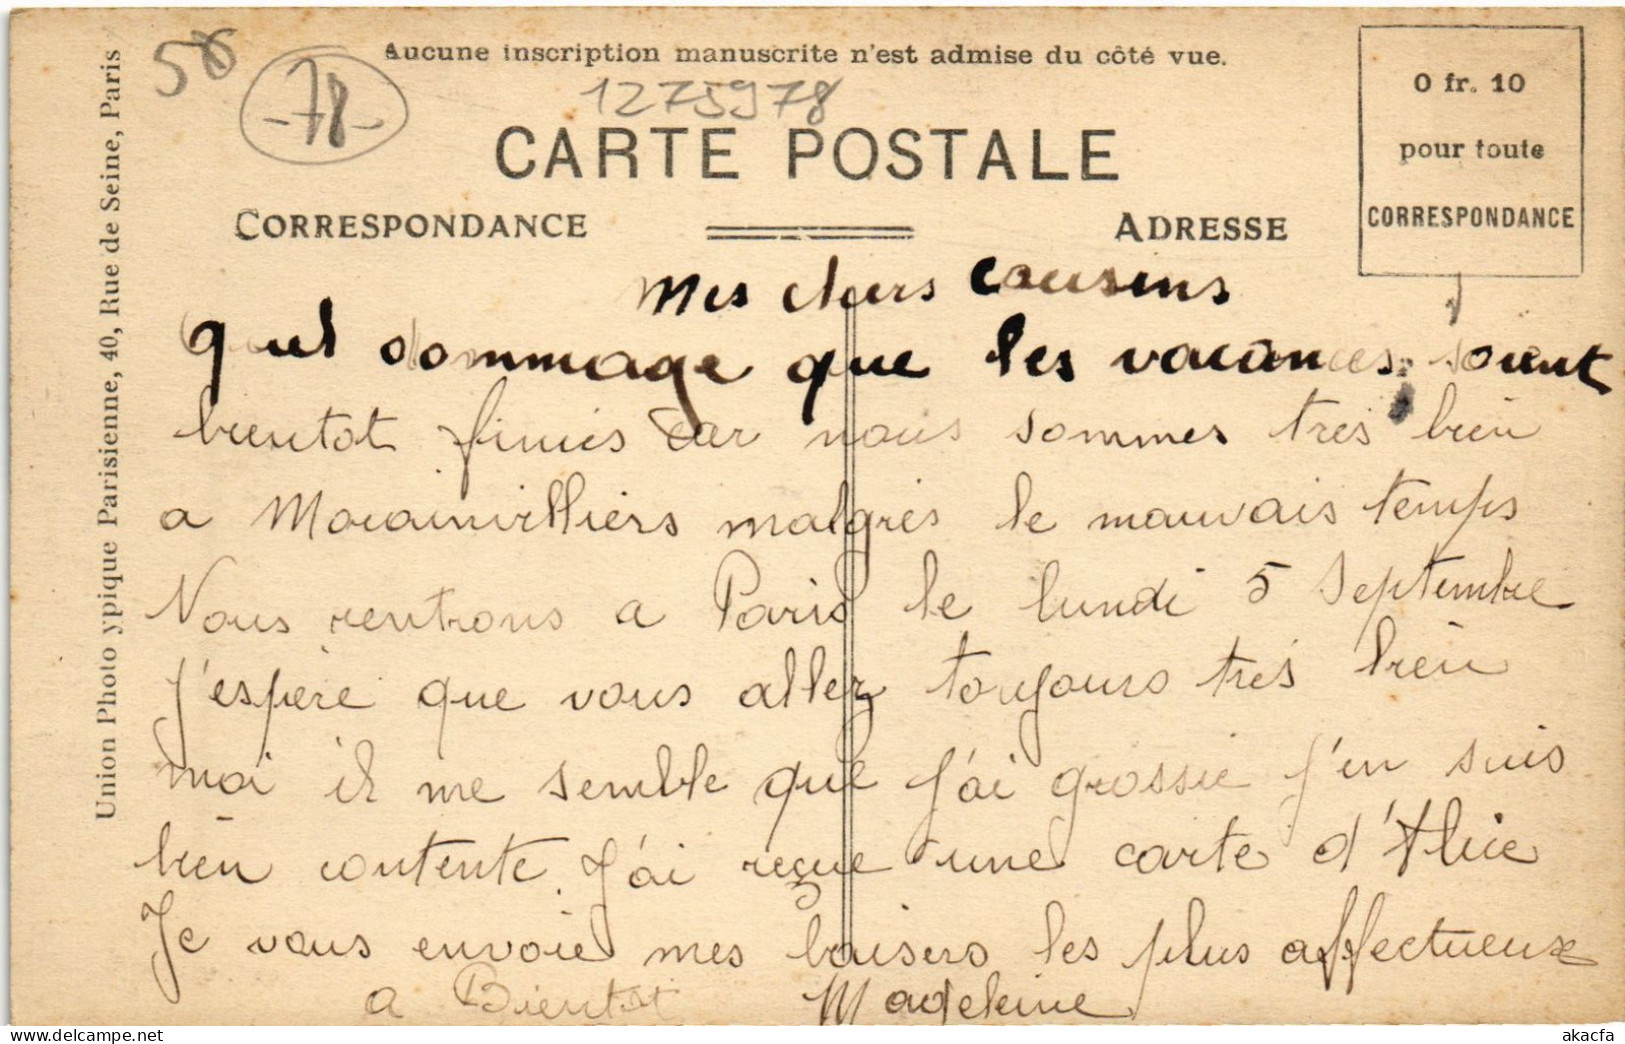 Aucune inscription manuscrite n'est admise du côté vue.
58
-78-
1275978
CARTE POSTALE
CORRESPONDANCE
ADRESSE
0 fr. 10
pour toute
CORRESPONDANCE
Union Photo ypique Parisienne, 40, Rue de Seine, Paris
Mes chers cousins
Quel dommage que les vacances soient
bientot finies car nous sommes très bien
a Morainvilliers malgrès le mauvais temps
Nous rentrons a Paris le lundi 5 Septembre
j'espère que vous allez toujours très bien
moi il me semble que j'ai grossie j'en suis
bien contente. J'ai reçue une carte d'Alice
Je vous envoie mes baisers les plus affectueux
a Bientot Madeleine
akacfa